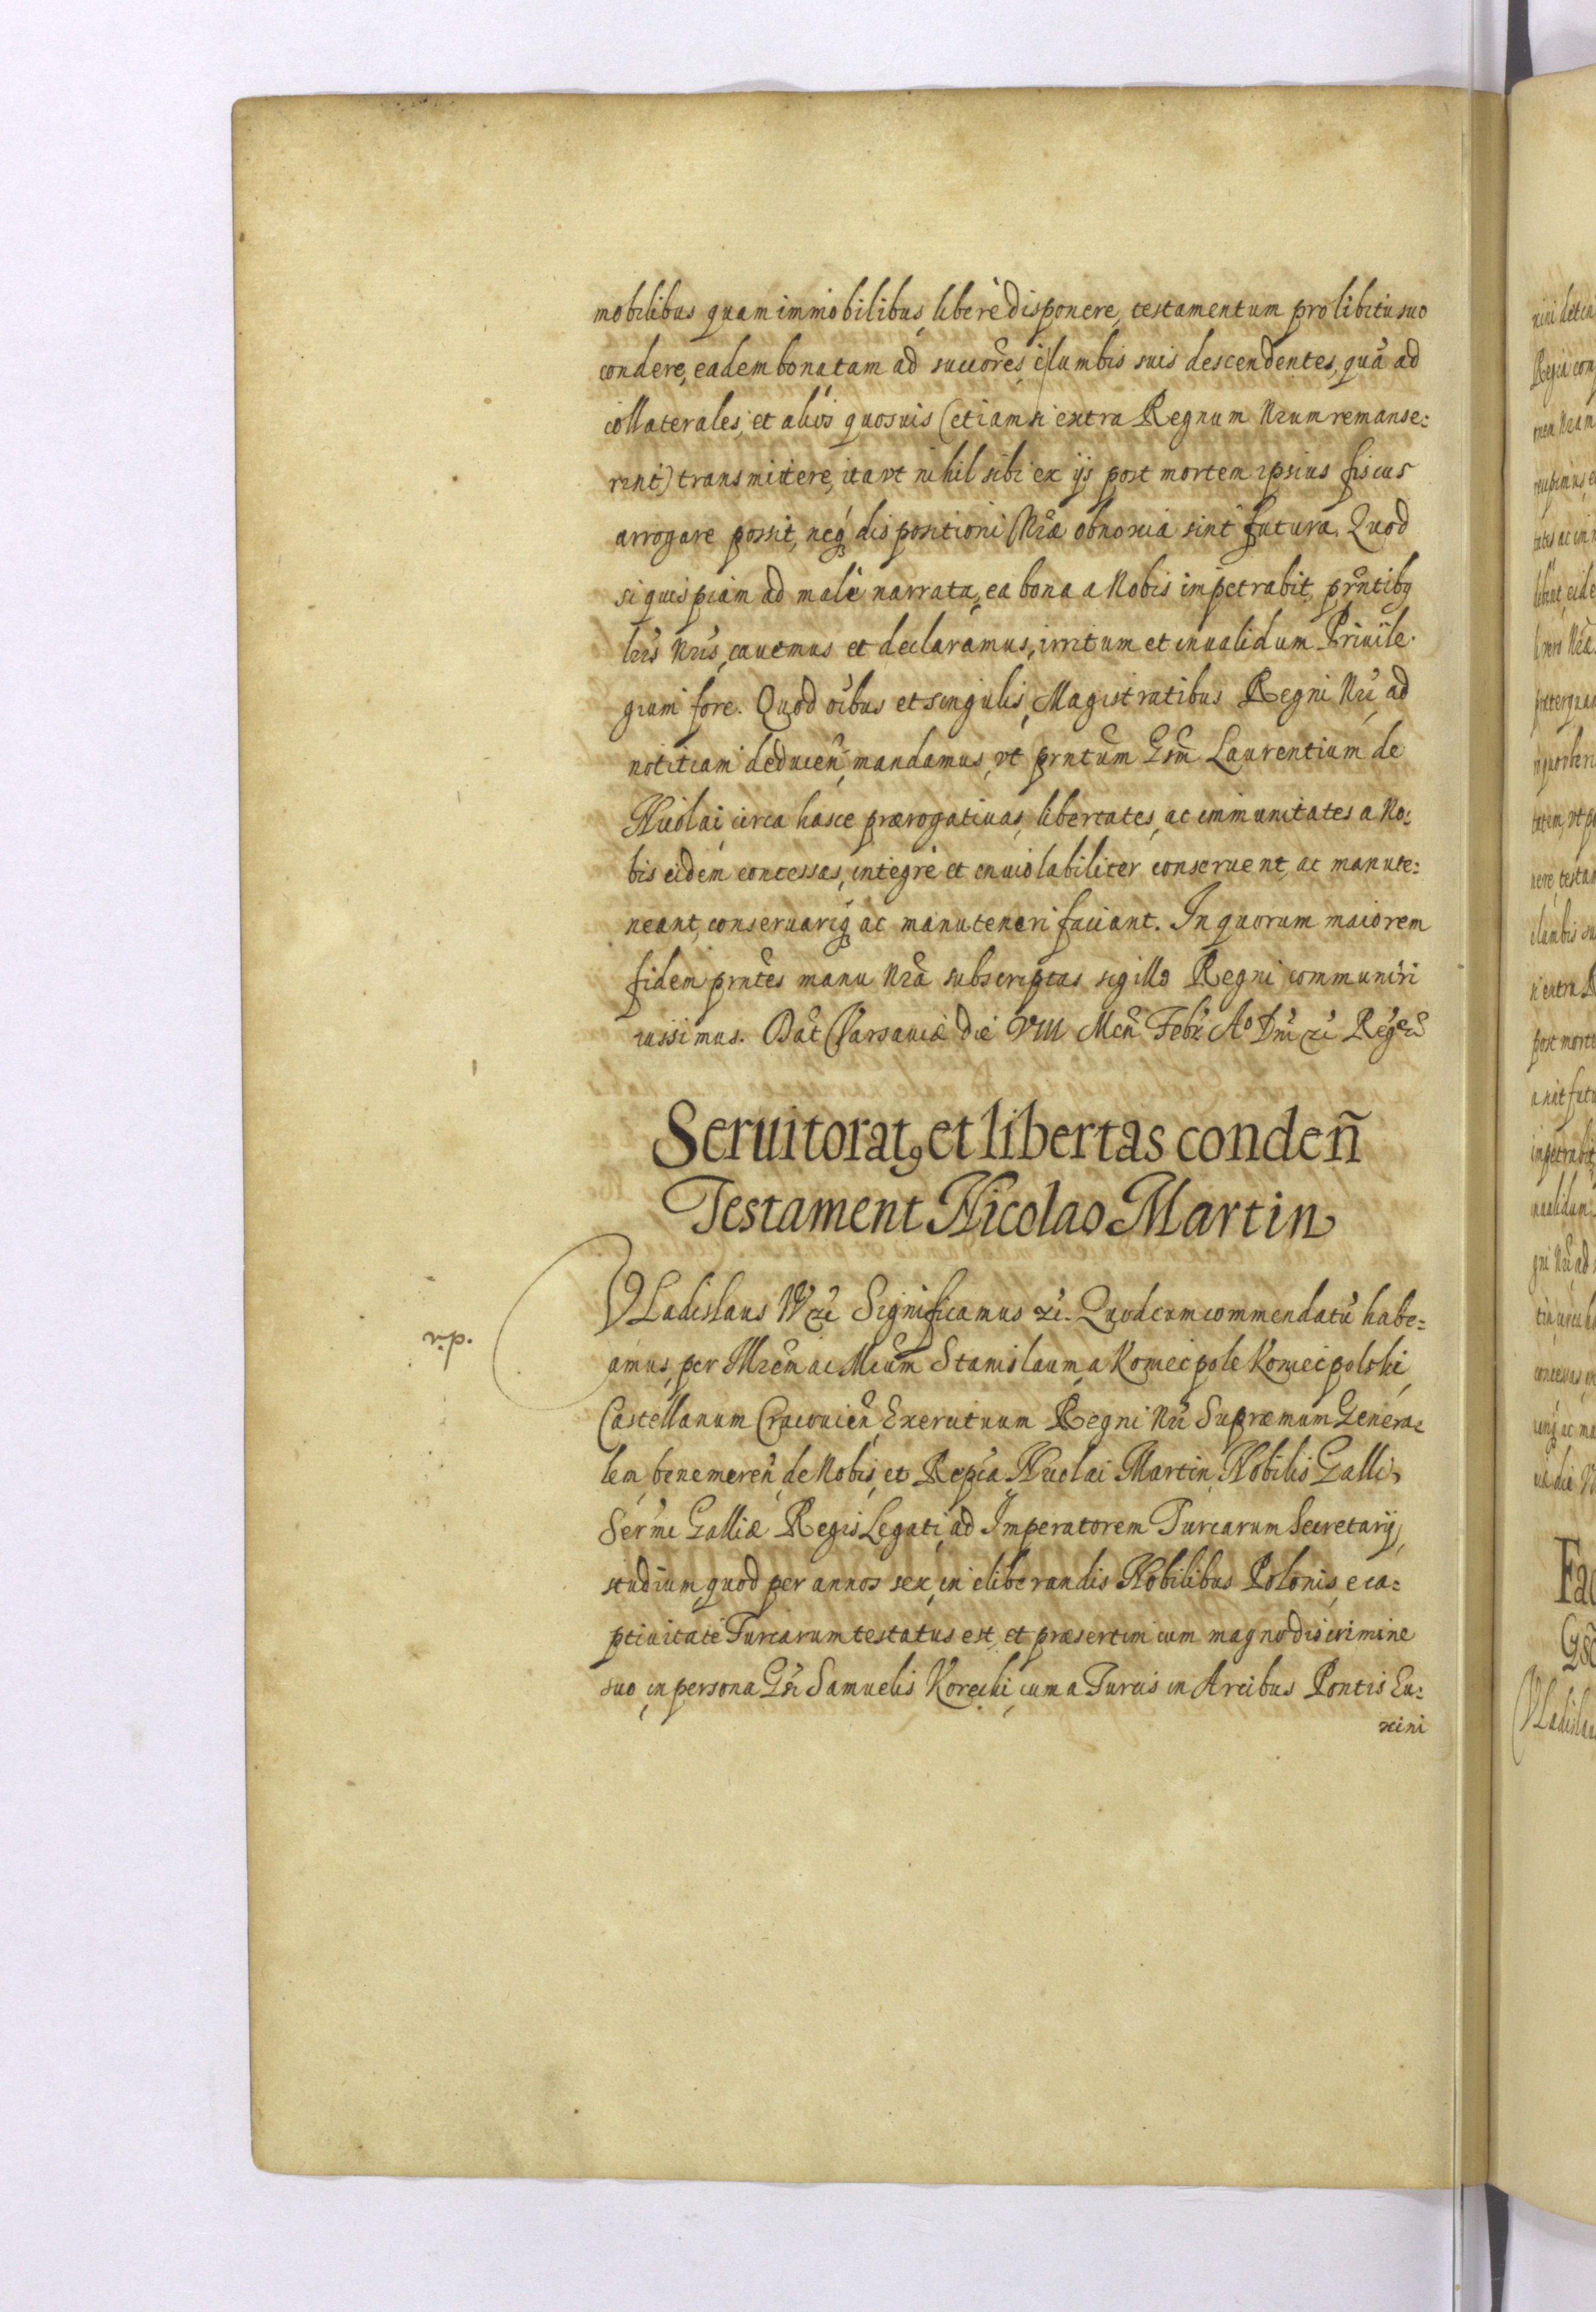 mobilibus quam immobilibus, liberè disponere, testamentum pro libitu suo
condere, eadem bona tam ad succores, è lumbis suis descendentes, quã ad
collaterales, et alios quosuis (etiam si extra Regnum Nrum remanse:
rint) transmittere, ita vt nihil sibi ex ijs post mortem ipsius fiscus
arrogare possit, neq dispositioni Nræ obnoxia sint futura. Quod
si quispiam ad malè narrata, ea bona a Nobis impetrabit, prntibq
lris Nris, cauemus et declaramus, irritum et inualidum Priuile:
gium fore. Quod oibus et singulis, Magistratibus Regni Nri, ad
notitiam deducen, mandamus, vt prntum Gsm Laurentium de
Nicolai, circa hasce prærogatiuas, libertates, ac immunitates a No:
bis eidem concessas, integrè et inuiolabiliter conseruent, ac manute:
neant, conseruariq ac manuteneri faciant. In quorum maiorem
fidem prntes manu Nra subscriptas sigillo Regni communiri
iussimus. Dat Varsauiæ die VIII Men Febr Aº Dni
Seruitorat9 et libertas condeñ
Testament Nicolao Martin
VLadislaus IV Significamus Quod cum commendatũ habe=
r.p.
amus, per Stanislaum, a Koniecpole Koniecpolski,
Castellanum Cracouien, Exercituum Regni Nri Supræmum Genera=
lem, benemeren, de Nobis, et Repca, Nicolai Martin, Nobilis Galli,
Sermi Galliæ Regis Legati, ad Imperatorem Turcarum Secretarij,
studium, quod per annos sex, in eliberandis Nobilibus Polonis, e ca=
ptiuitate Turcarum testatus est, et præsertim cum magno discrimine
suo, in persona Gsi Samuelis Korecki, cum a Turcis in Arcibus Pontis Eu=
xini